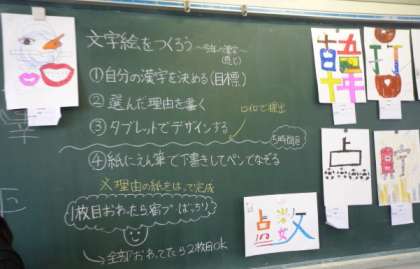 文字絵をつくろう ～今年の漢字～
(感じ)
①自分の漢字を決める(目標)
②選んだ理由を書く
ロイロで提出
③タブレットでデザインする
5時間目
④紙にえん筆で下書きしてペンでなぞる
※理由の紙をはって完成
1枚目おわったら宿プ
ばっちり
全部おわってたら2枚目OK
韓
打
点
点数